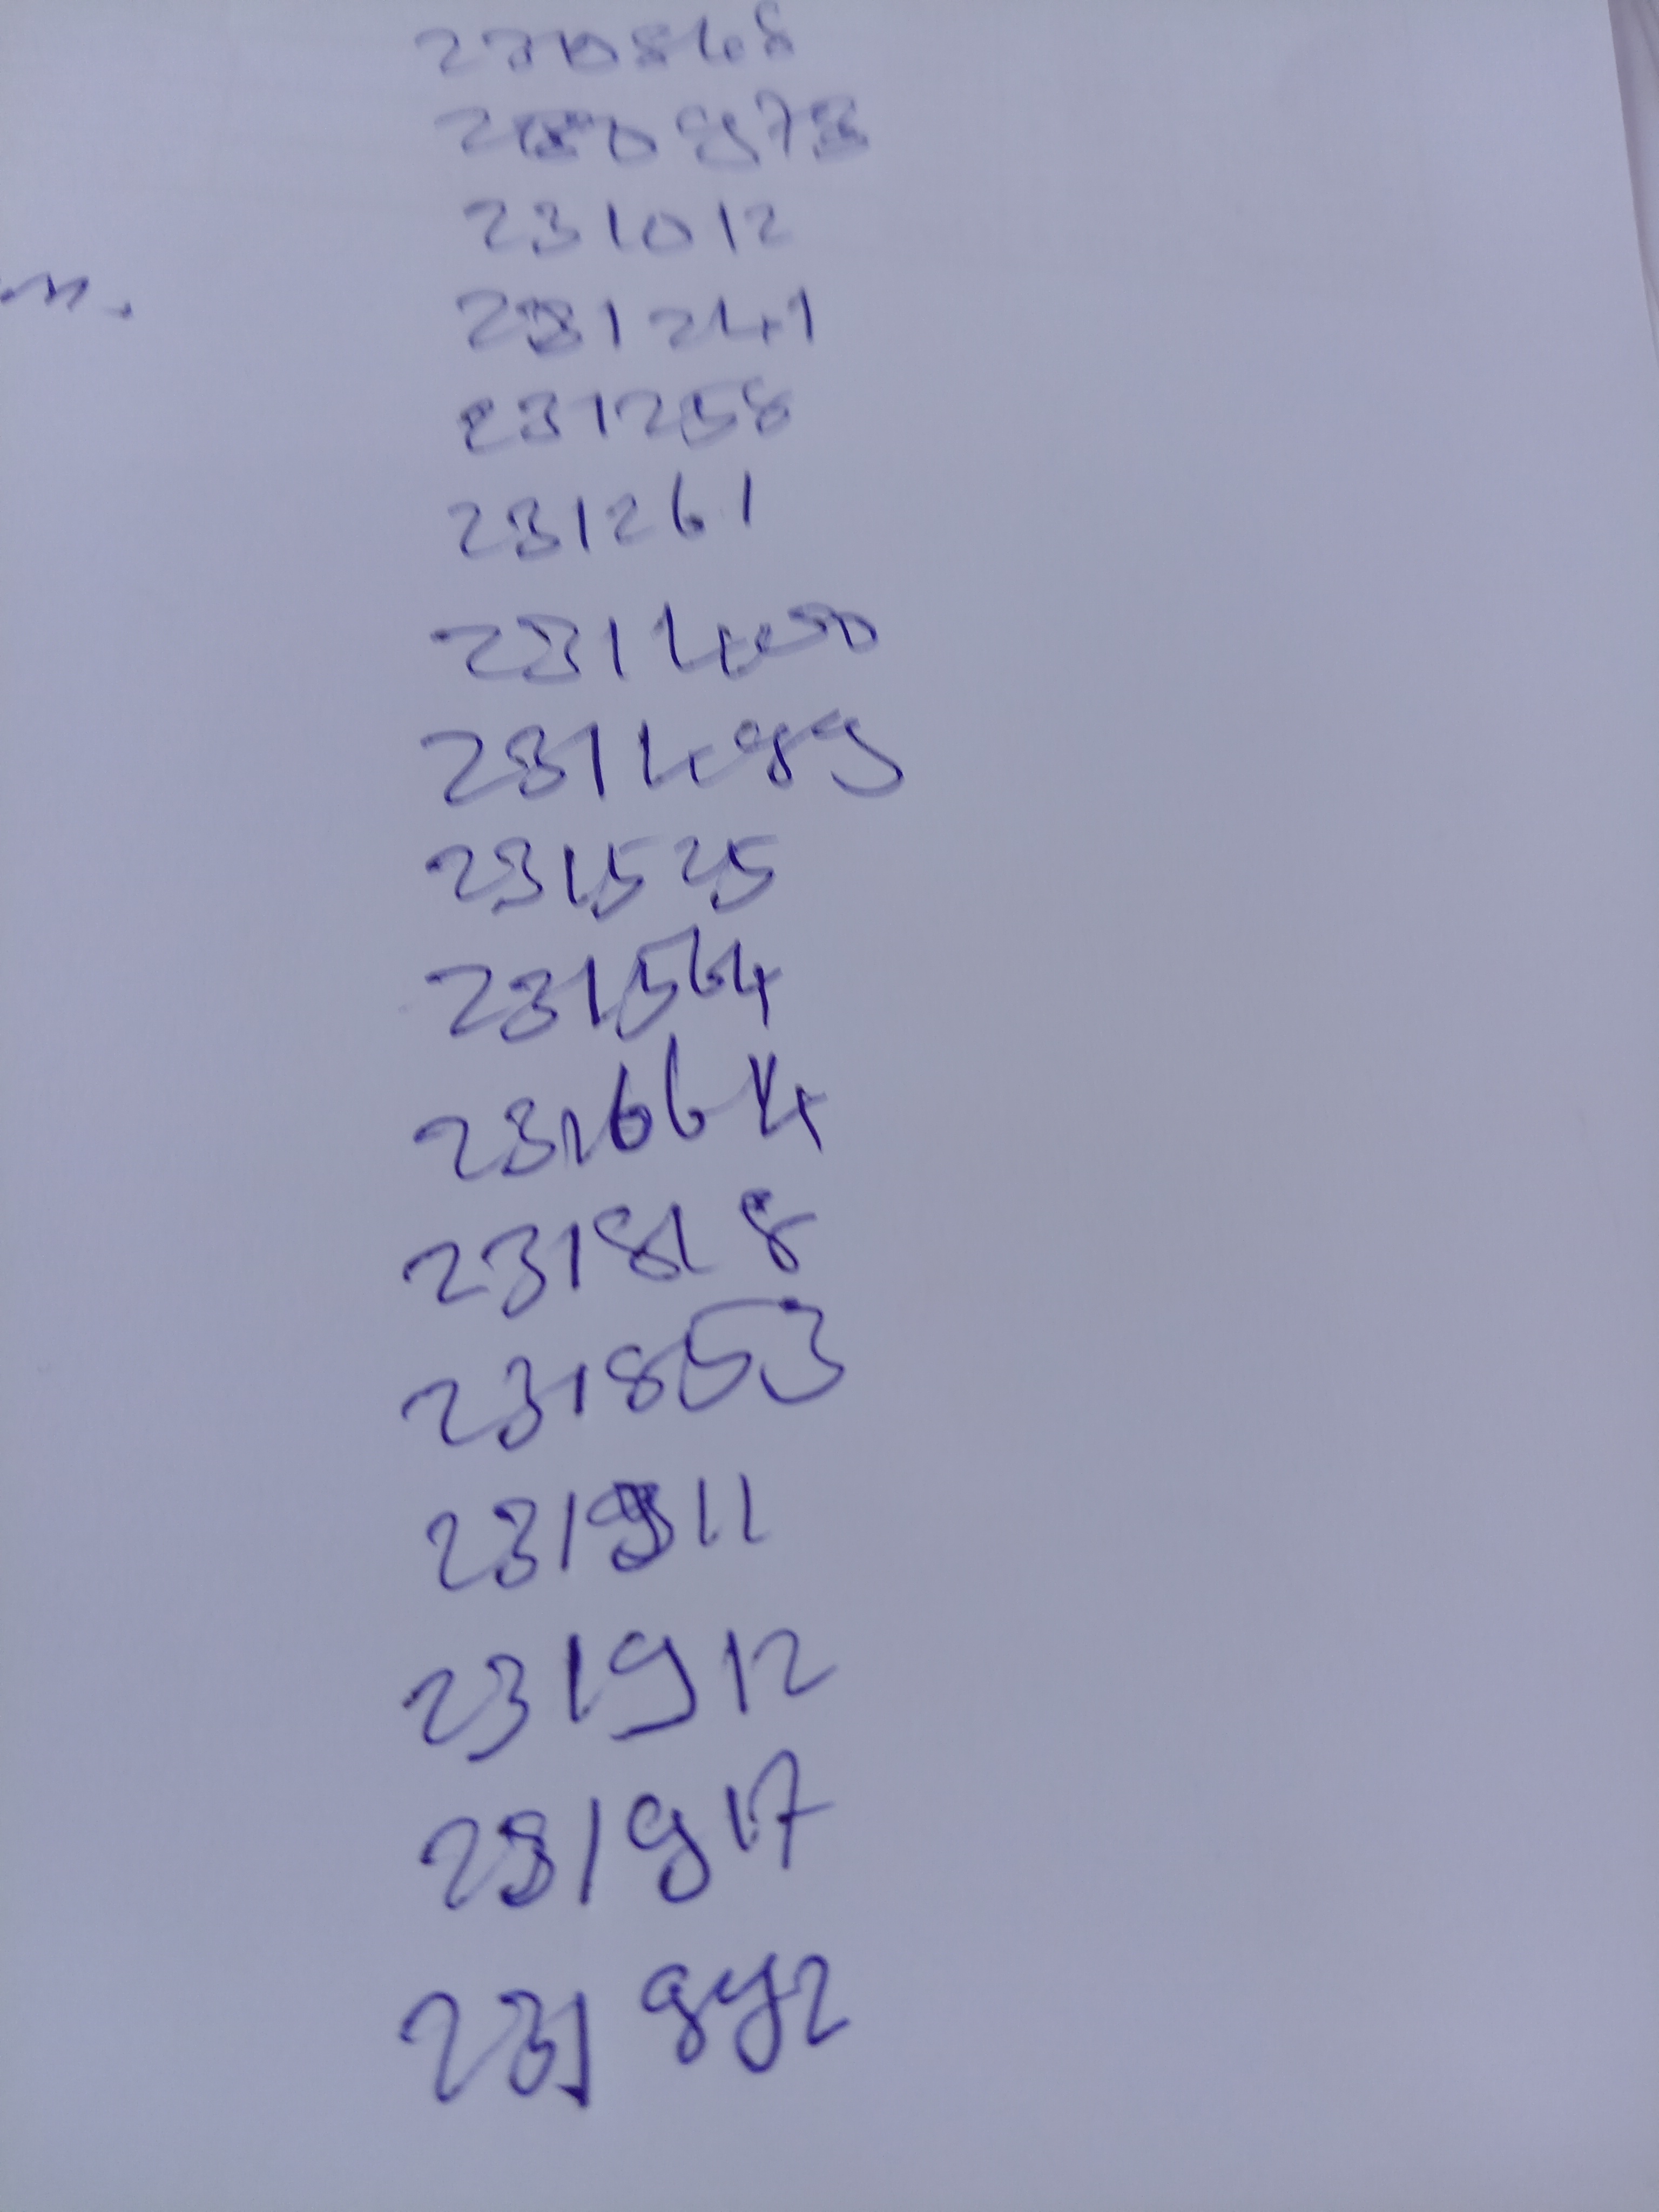 230868
230978
231012
231241
231258
231261
231400
231489
231525
231564
231664
231818
231853
231911
231912
231917
231992